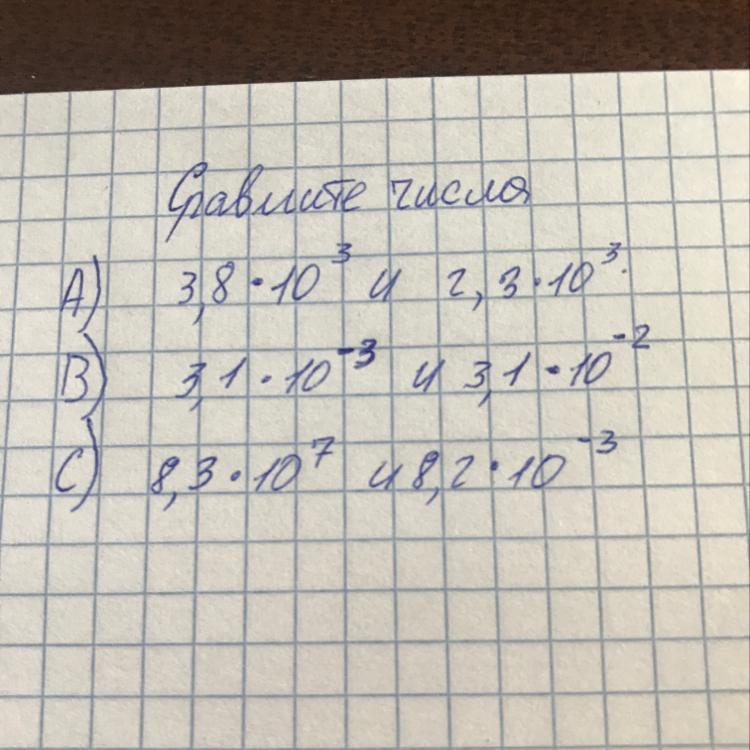 Сравните числа
A) 3,8 · 10³ и 2,3 · 10³.
B) 3,1 · 10⁻³ и 3,1 · 10⁻²
C) 8,3 · 10⁷ и 8,2 · 10⁻³